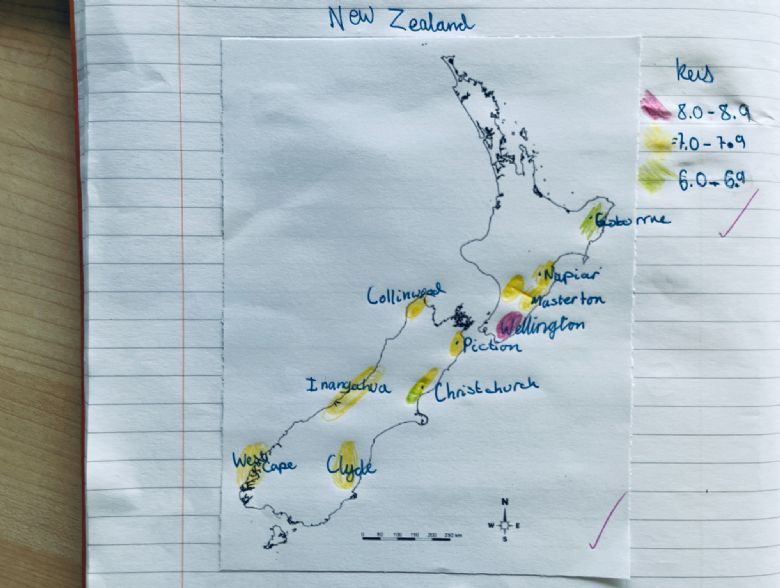 New Zealand
keis
8.0-8.9
7.0-7.9
6.0-6.9
Napiar
Masterton
Collinwood
Wellington
Piction
Inangahua
Christchurch
West
Cape
Clyde
N
W E
S
0 50 100 150 200 250 km